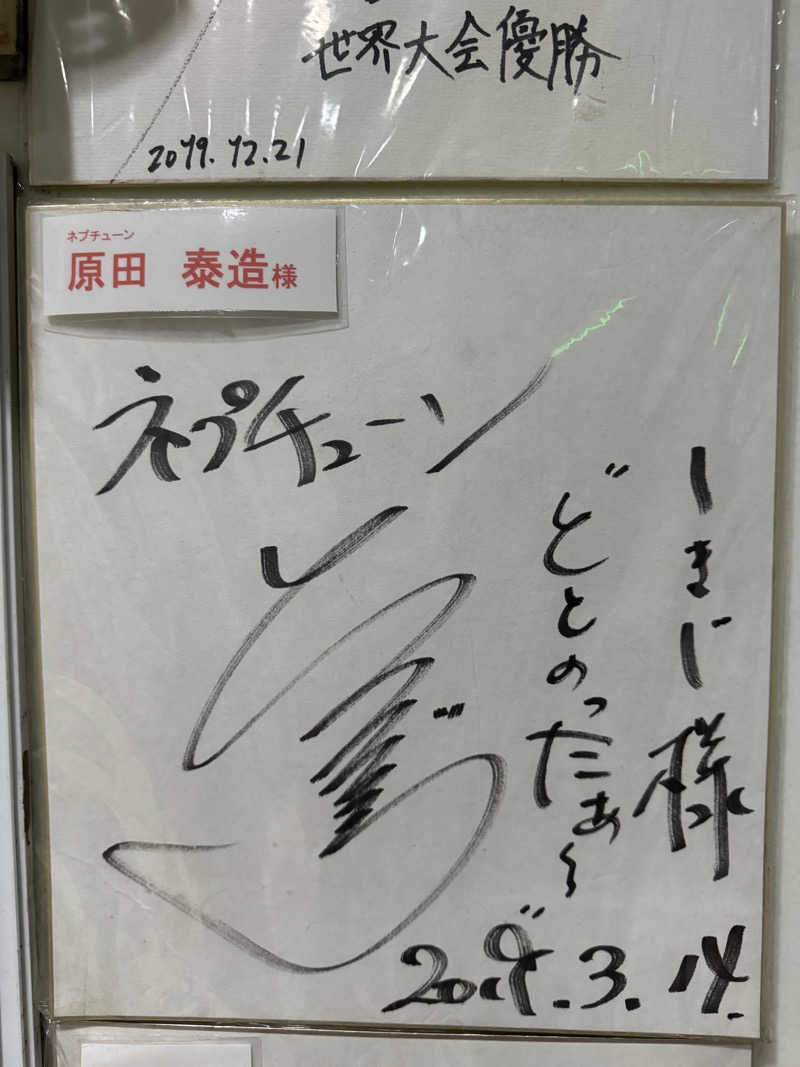 世界大会優勝
2019.12.21
ネプチューン
原田 泰造様
ネプチューン
しまじ様
どとのったあ〜
2019.3.14.